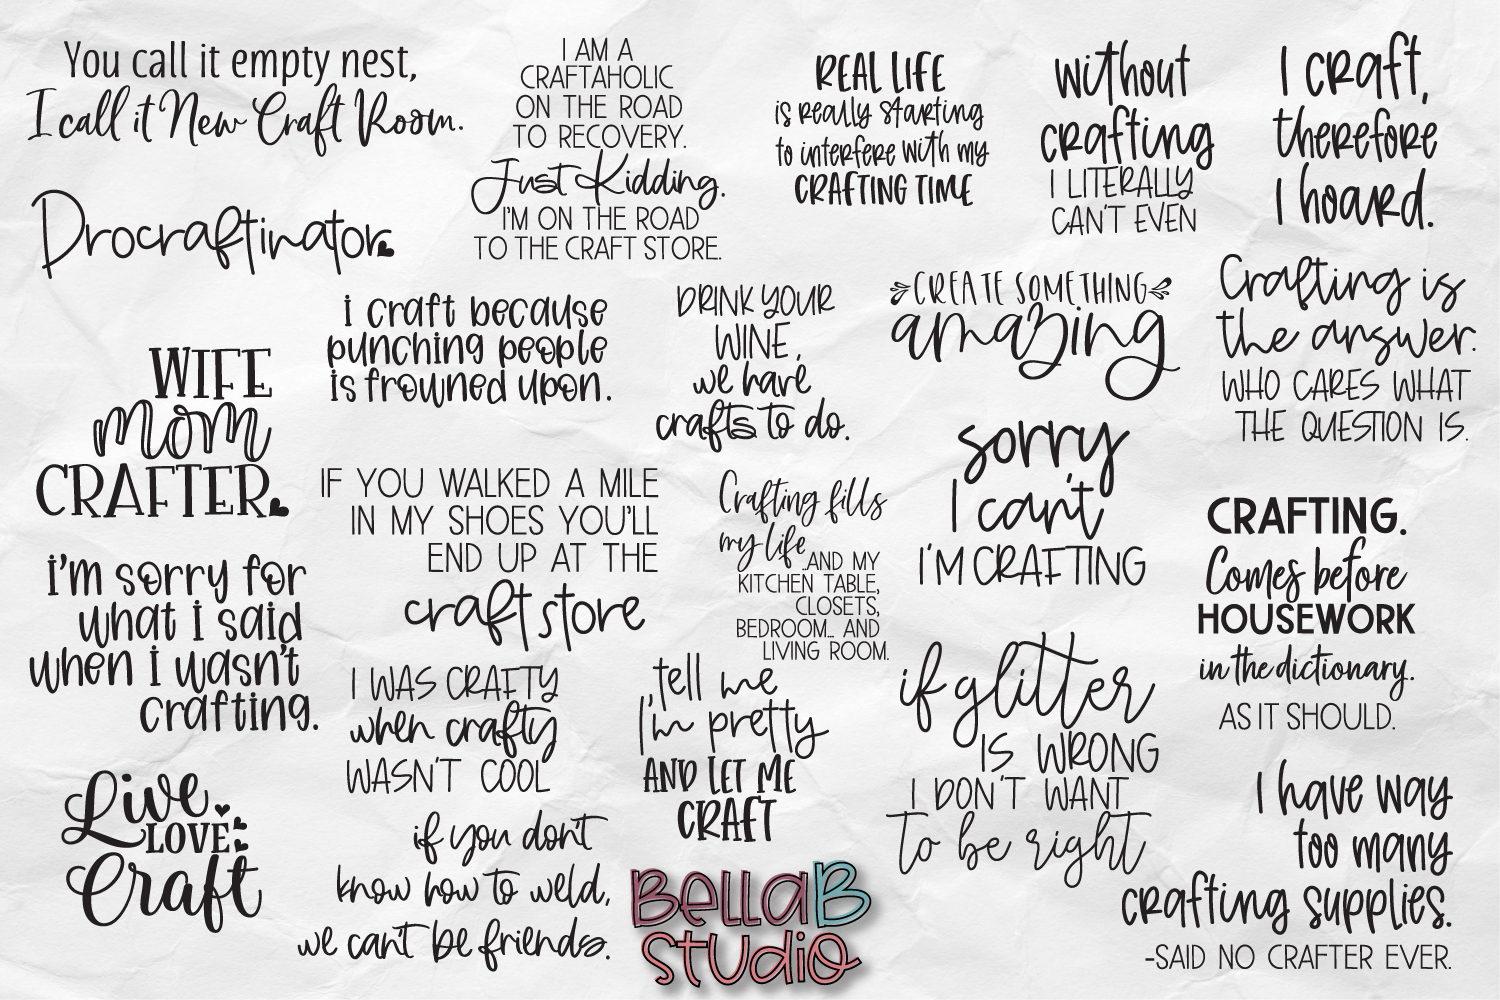 You call it empty nest,
I call it New Craft Room.
I AM A
CRAFTAHOLIC
ON THE ROAD
TO RECOVERY.
Just Kidding.
I'M ON THE ROAD
TO THE CRAFT STORE.
REAL LIFE
is really starting
to interfere with my
CRAFTING TIME
without
crafting
I LITERALLY
CAN'T EVEN
I craft,
therefore
I hoard.
Procraftinator
i craft because
punching people
is frowned upon.
DRINK YOUR
WINE,
we have
crafts to do.
CREATE SOMETHING
amazing
Crafting is
the answer.
WHO CARES WHAT
THE QUESTION IS.
WIFE
mom
CRAFTER
IF YOU WALKED A MILE
IN MY SHOES YOU'LL
END UP AT THE
craft store
Crafting fills
my life
...AND MY
KITCHEN TABLE,
CLOSETS,
BEDROOM... AND
LIVING ROOM.
sorry
I can't
I'M CRAFTING
CRAFTING.
Comes before
HOUSEWORK
in the dictionary.
AS IT SHOULD.
i'm sorry for
what i said
when i wasn't
crafting.
I WAS CRAFTY
when crafty
WASN'T COOL
tell me
I'm pretty
AND LET ME
CRAFT
if glitter
IS WRONG
I DON'T WANT
to be right
Live
LOVE
Craft
if you don't
know how to weld,
we can't be friends.
BellaB
Studio
I have way
too many
crafting supplies.
-SAID NO CRAFTER EVER.